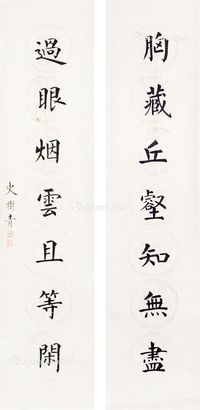 胸藏丘壑知無盡
過眼烟雲且等閑
史樹青